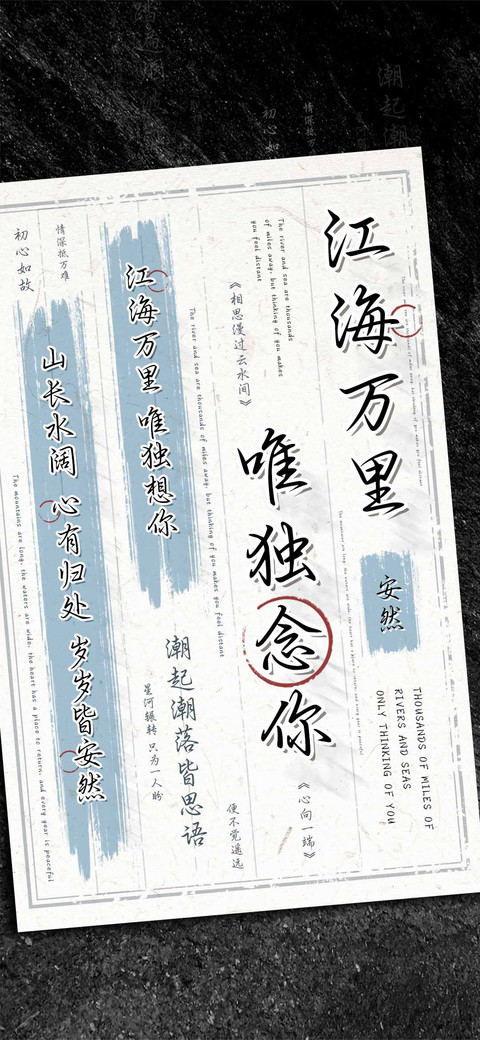 江海万里
THOUSANDS OF MILES OF
RIVERS AND SEAS
ONLY THINKING OF YOU
安然
唯独念你
《心向一端》
The river and sea are thousands
of miles away, but thinking of you makes
you feel distant
《相思漫过云水间》
便不觉遥远
The river and sea are thousands of miles away, but thinking of you makes you feel distant
潮起潮落皆思语
星河辗转 只为一人盼
江海万里 唯独想你
情深抵万难
山长水阔 心有归处 岁岁皆安然
初心如故
The mountains are long, the waters are wide, the heart has a place to return, and every year is peaceful
潮起潮
情深抵万
初心如